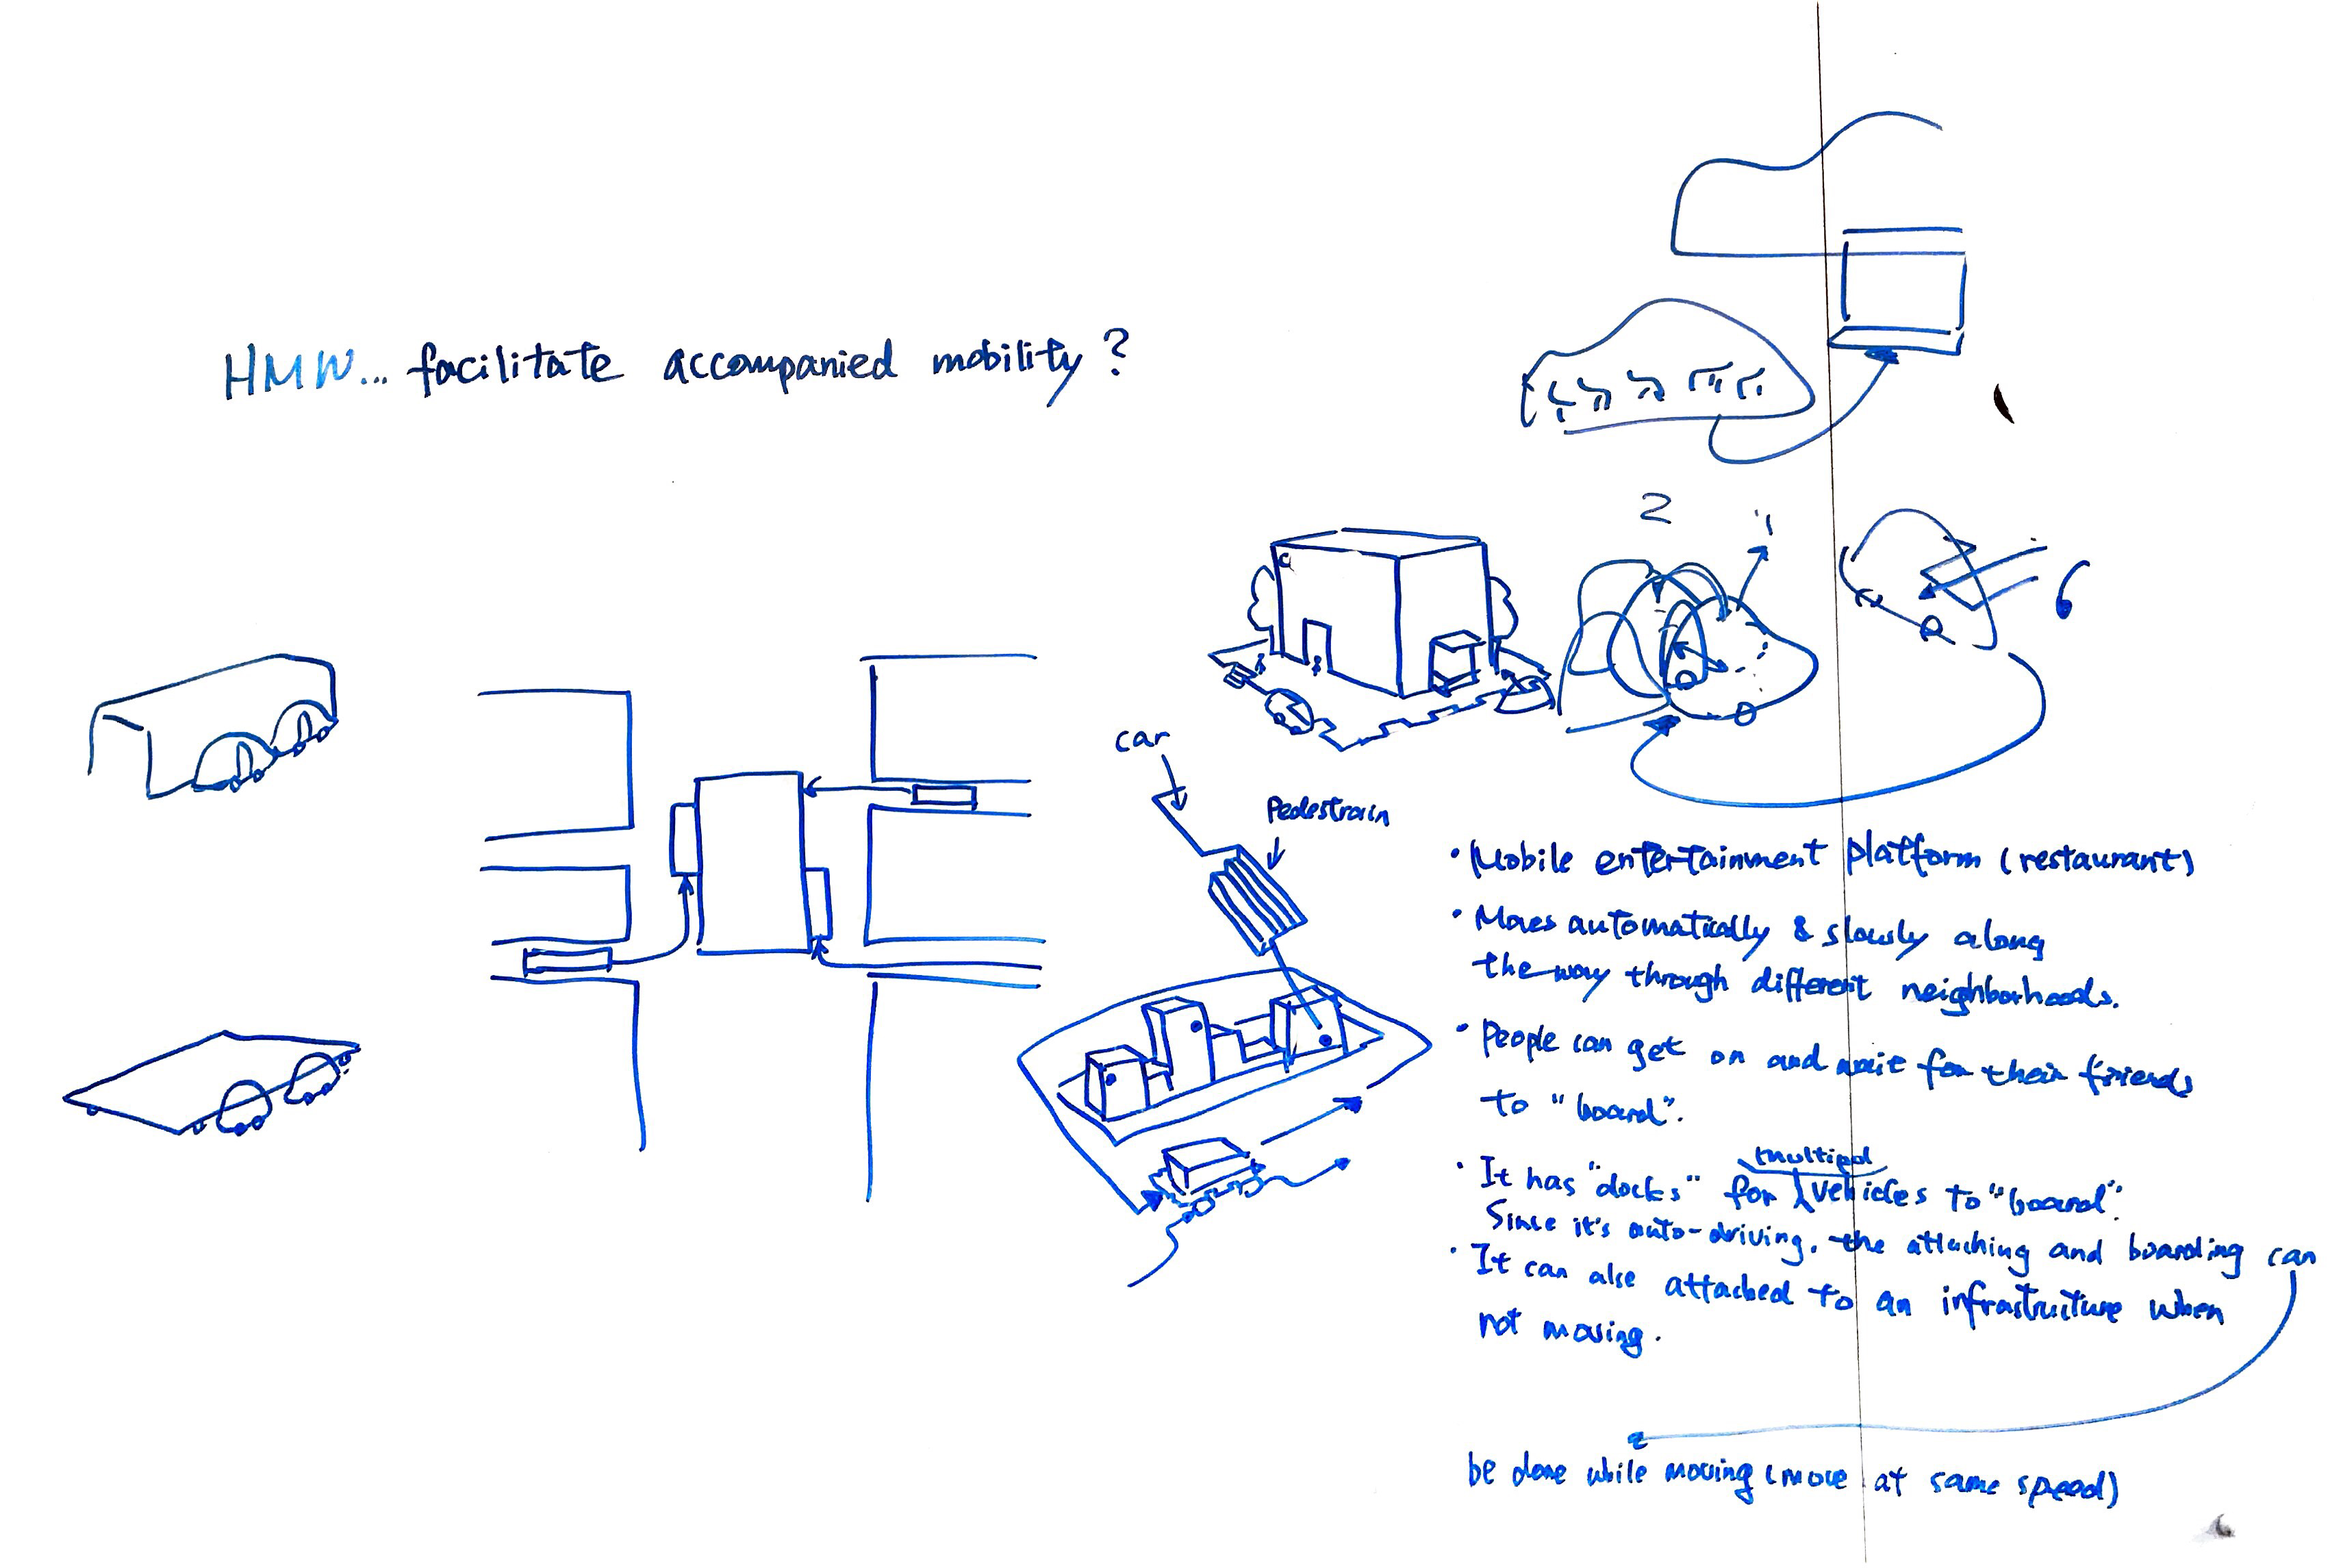 HMW... facilitate accompanied mobility?
2
1
car
Pedestrain
• Mobile entertainment platform (restaurant)
• Moves automatically & slowly along
the way through different neighborhoods.
• People can get on and wait for their friends
to "board".
• It has "docks" for multipal vehicles to "board".
Since it's auto-driving, the attaching and boarding can
• It can also attached to an infrastructure when
not moving.
be done while moving (move at same speed)